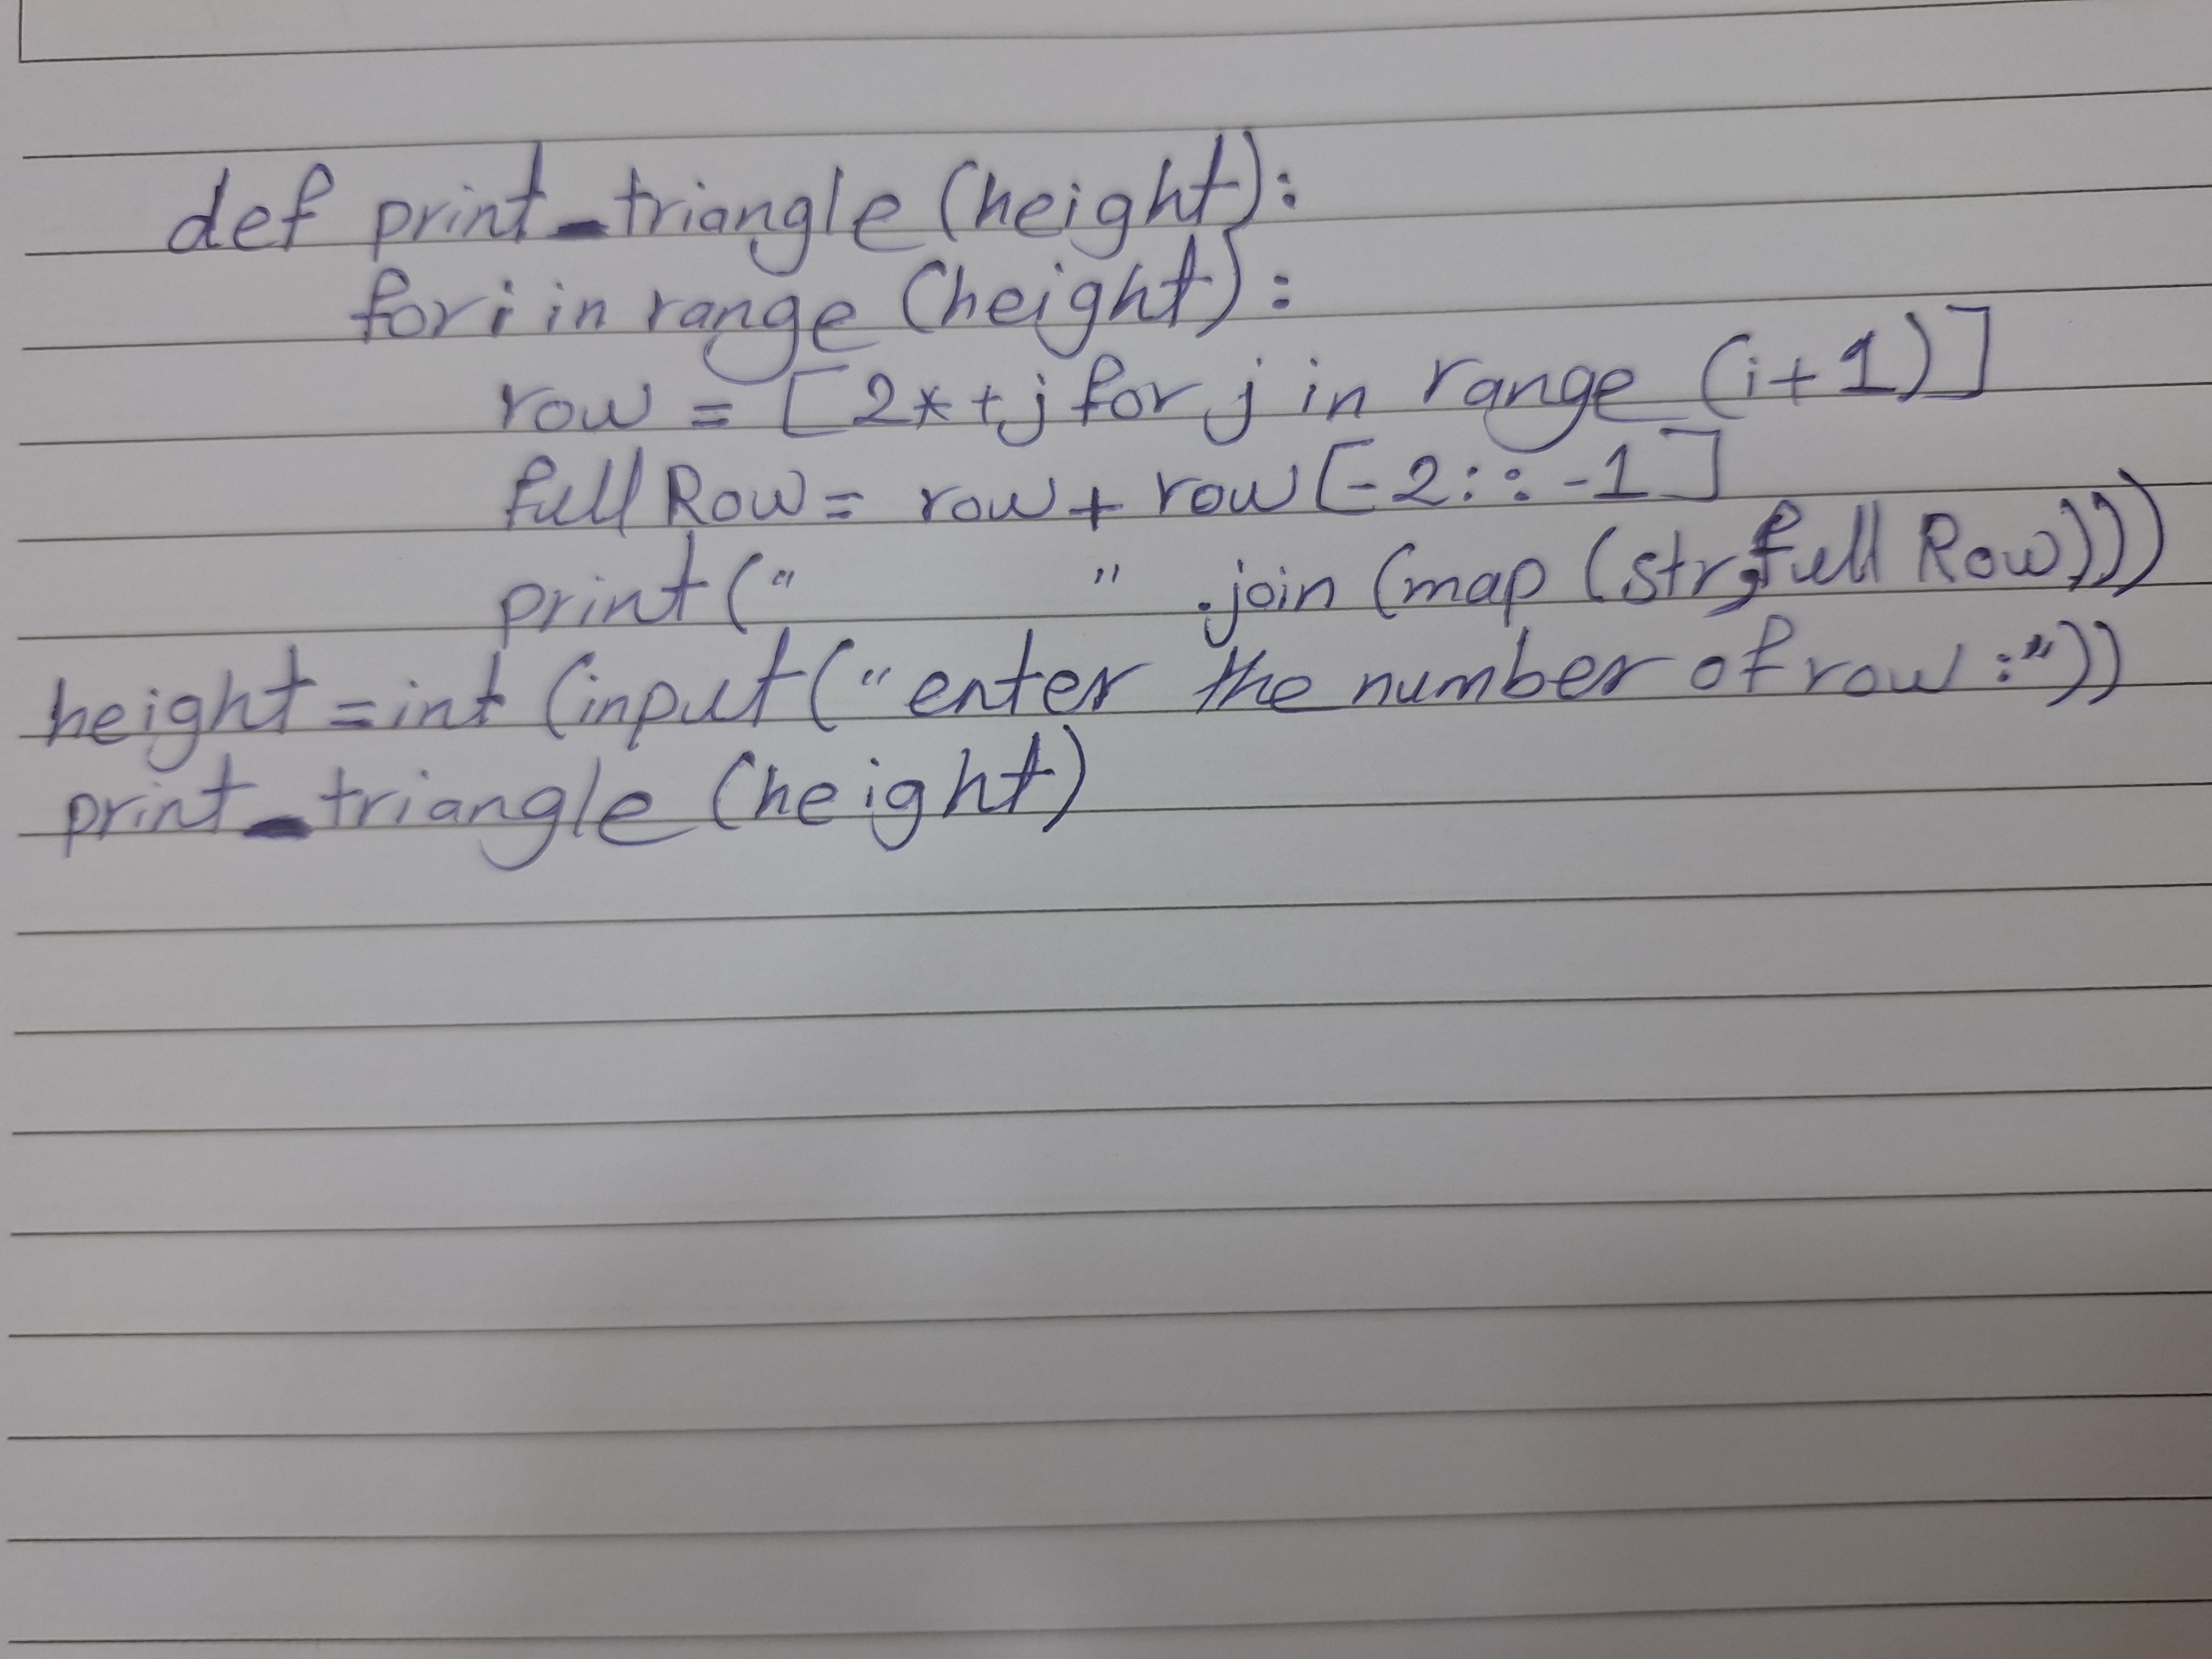 def print_triangle (height):
for i in range (height):
row = [2*+j for j in range (i+1)]
full Row = row + row [-2::-1]
print (" " .join (map (str, full Row)))
height = int (input ("enter the number of row :"))
print_triangle (height)